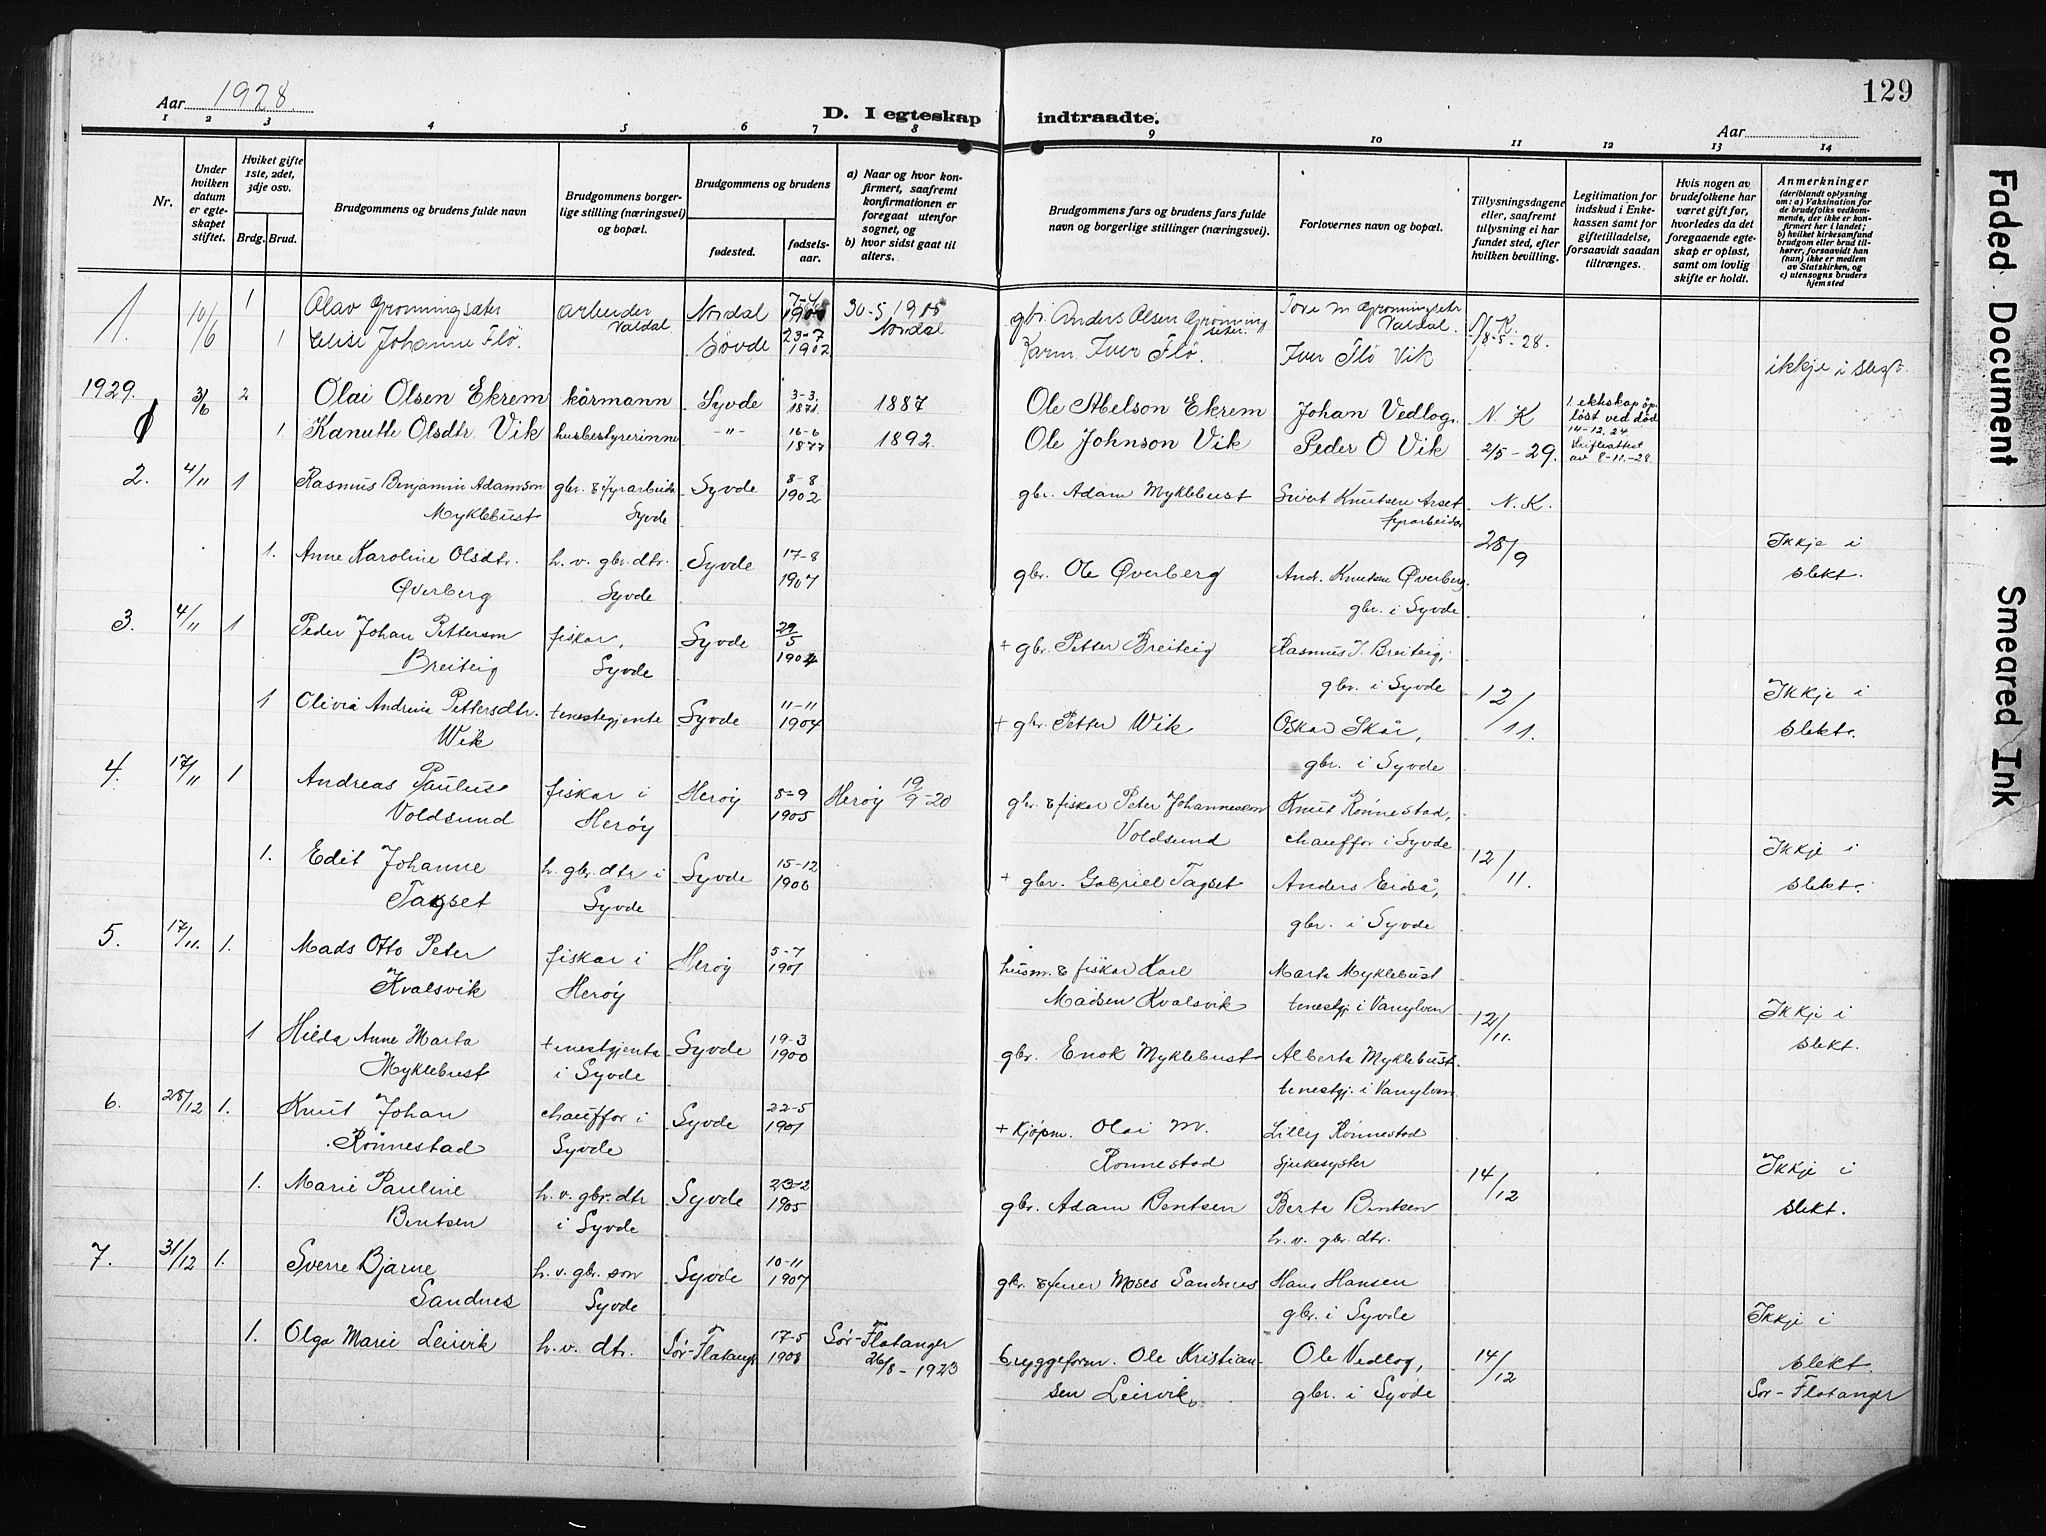 Aar 1928
D. I egteskap indtraadte.
129
Aar
1 2 3 4 5 6 7 8 9 10 11 12 13 14
Nr.
Under hvilken datum er egteskapet stiftet.
Hviket gifte 1ste, 2det, 3dje osv.
Brdg. Brud.
Brudgommens og brudens fulde navn
Brudgommens borgerlige stilling (næringsvei) og bopæl.
Brudgommens og brudens
fødested.
fødselsaar.
a) Naar og hvor konfirmert, saafremt konfirmationen er foregaat utenfor sognet, og
b) hvor sidst gaat til alters.
Brudgommens fars og brudens fars fulde navn og borgerlige stillinger (næringsvei).
Forlovernes navn og bopæl.
Tillysningsdagene eller, saafremt tillysning ei har fundet sted, efter hvilken bevilling.
Legitimation for indskud i Enkekassen samt for giftetilladelse, forsaavidt saadan tiltrænges.
Hvis nogen av brudefolkene har været gift før, hvorledes da det foregaaende egteskap er opløst, samt om lovlig skifte er holdt.
Anmerkninger
(deriblandt oplysning om: a) Vaksination for de brudefolks vedkommende, der ikke er konfirmert her i landet; b) hvilket kirkesamfund brudgom eller brud tilhører, forsaavidt han (hun) ikke er medlem av Statskirken, og c) utensogns bruders hjemsted
1. 10/6 1 Olav Grønningsæter arbeider Valdal Nordal 7-4 30-5 1905 Nordal gbr. Anders Olsen Grønningsæter. Tore M Grønningsætr Valdal. N. K.
1 Johanne Flø. Søvde 23-7 1902 Karm. Iver Flø. Iver Flø Vik 18-5-28. ikkje i slegt.
1929.
3/6 2 Olai Olsen Ekrem kårmann Syvde 3-3. 1871. 1887 Ole Abelson Ekrem Johan Vedlog. N. K 1 ektskap öpløst ved död 14-12. 24
1. Kanutte Olsdtr. Vik husbestyrerinne -"- 16-6 1877 1892. Ole Johnson Vik Peder O Vik 2/5-29. Skifteattest av 8-11.-28.
2. 4/11 1 Rasmus Benjamin Adamson Myklebust gbr. & fyrarbeidr Syvde Syvde 8-8 1902 gbr. Adam Myklebust Sivert Knutsen Arset fyrarbeidar N. K.
1. Anne Karoline Olsdtr. Øverberg h. v. gbr. dtr. Syvde Syvde 17-8 1907 gbr. Ole Øverberg And. Knutsen Øverberg. gbr. i Syvde 28/9 Ikkje i slekt.
3. 4/11 1 Peder Johan Petterson Breiteig fiskar, Syvde Syvde 29/5 1904 + gbr. Petter Breiteig Rasmus J. Breiteig, gbr. i Syvde
1 Olivia Andrina Pettersdtr. Wik tenestegjente Syvde 11-11 1904 + gbr. Petter Wik Oskar Skår, gbr. i Syvde 12/11. Ikkje i slekt.
4. 17/11 1 Andreas Paulus Voldsund fiskar i Herøy Herøy 8-9 1905 Herøy 19/9-20 gbr. & fiskar Peter Johanneson Voldsund Knut Rönnestad, chauffør i Syvde
1. Edit Johanne Tagset h. gbr. dtr i Syvde Syvde 15-12 1906 + gbr. Gabriel Tagset Anders Eidså, gbr. i Syvde 12/11. Ikkje i slekt.
5. 17/11. 1. Mads Otto Peter Kvalsvik fiskar i Herøy Herøy 5-7 1901 husm. & fiskar Karl Madsen Kvalsvik Marta Myklebust tenestgj. i Vanylven
1 Hilda Anne Marta Myklebust tenestgjenta i Syvde Syvde 19-3 1900 gbr. Enok Myklebust Alberta Myklebust tenestgj. i Vanylven 12/11. Ikkje i slekt.
6. 28/12 1. Knut Johan Rönnestad chauffør i Syvde Syvde 22-5 1901 + Kjöpm. Olai M. Rönnestad Lilly Rönnestad Sjukesyster
1. Marie Pauline Bentsen h. v. gbr. dtr i Syvde Syvde 23-2 1905 gbr. Adam Bentsen Berte Bentsen h. v. gbr. dtr. 14/12 Ikkje i slekt.
7. 31/12 1. Sverre Bjarne Sandnes h. v. gbr. son Syvde Syvde 10-11 1907 gbr. & furer Moses Sandnes Hans Hansen gbr. i Syvde
1. Olga Marie Leirvik h. v. dtr. Sör-Flatangr 17-5 1908 Sör-Flatanger 26/8-1923 bryggeform. Ole Kristiansen Leirvik Ole Vedlog, gbr. i Syvde 14/12 Ikkje i slekt. Sör-Flatanger
Faded Document
Smeared Ink